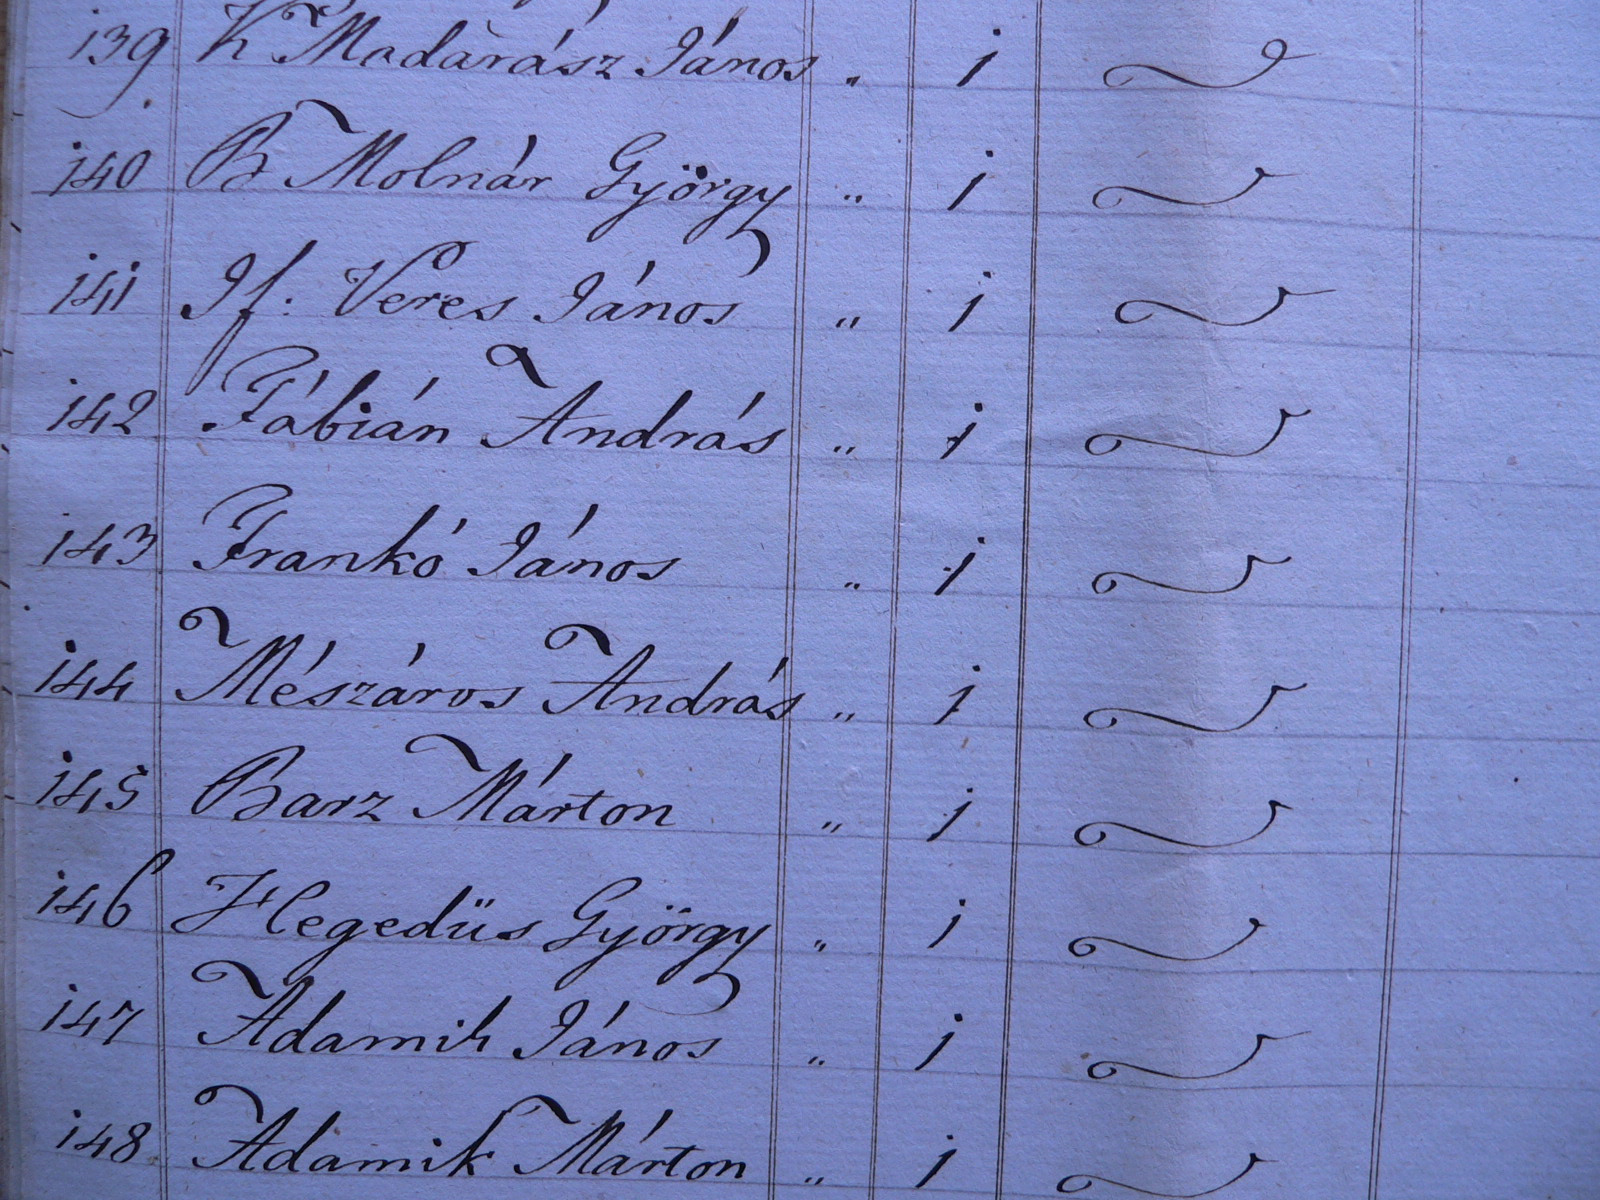 139 K Madarász János " 1
140 B Molnár György " 1
141 If: Veres János " 1
142 Fábián András " 1
143 Frankó János " 1
144 Mészáros András " 1
145 Barz Márton " 1
146 Hegedüs György " 1
147 Adamik János " 1
148 Adamik Márton " 1